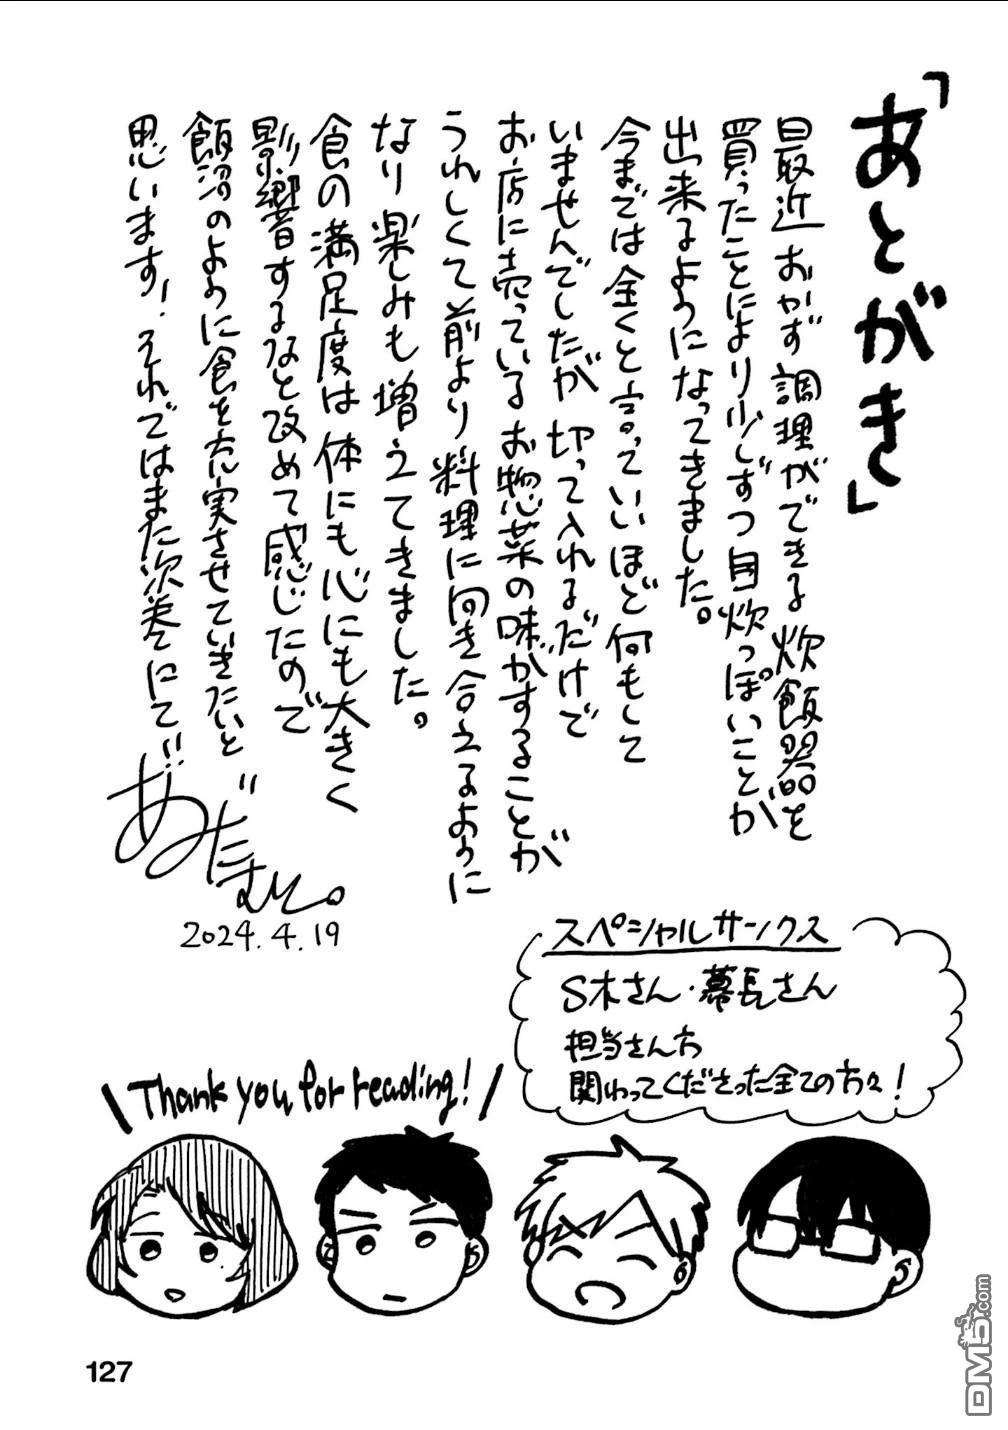 「あとがき」
最近おかず調理ができる炊飯器を
買ったことにより少しずつ自炊っぽいことが
出来るようになってきました。
今までは全くと言っていいほど何もして
いませんでしたが切って入れるだけで
お店に売っているお惣菜の味がすることが
うれしくて前より料理に向き合えるように
なり楽しみも増えてきました。
食の満足度は体にも心にも大きく
影響するなと改めて感じたので
飯沼のように食を充実させていきたいと
思います！それではまた次巻にて!!
あむだむと。
2024.4.19
スペシャルサンクス
S木さん・幕長さん
担当さん方
関わってくださった全ての方々！
Thank you for reading!
127
DM5.com